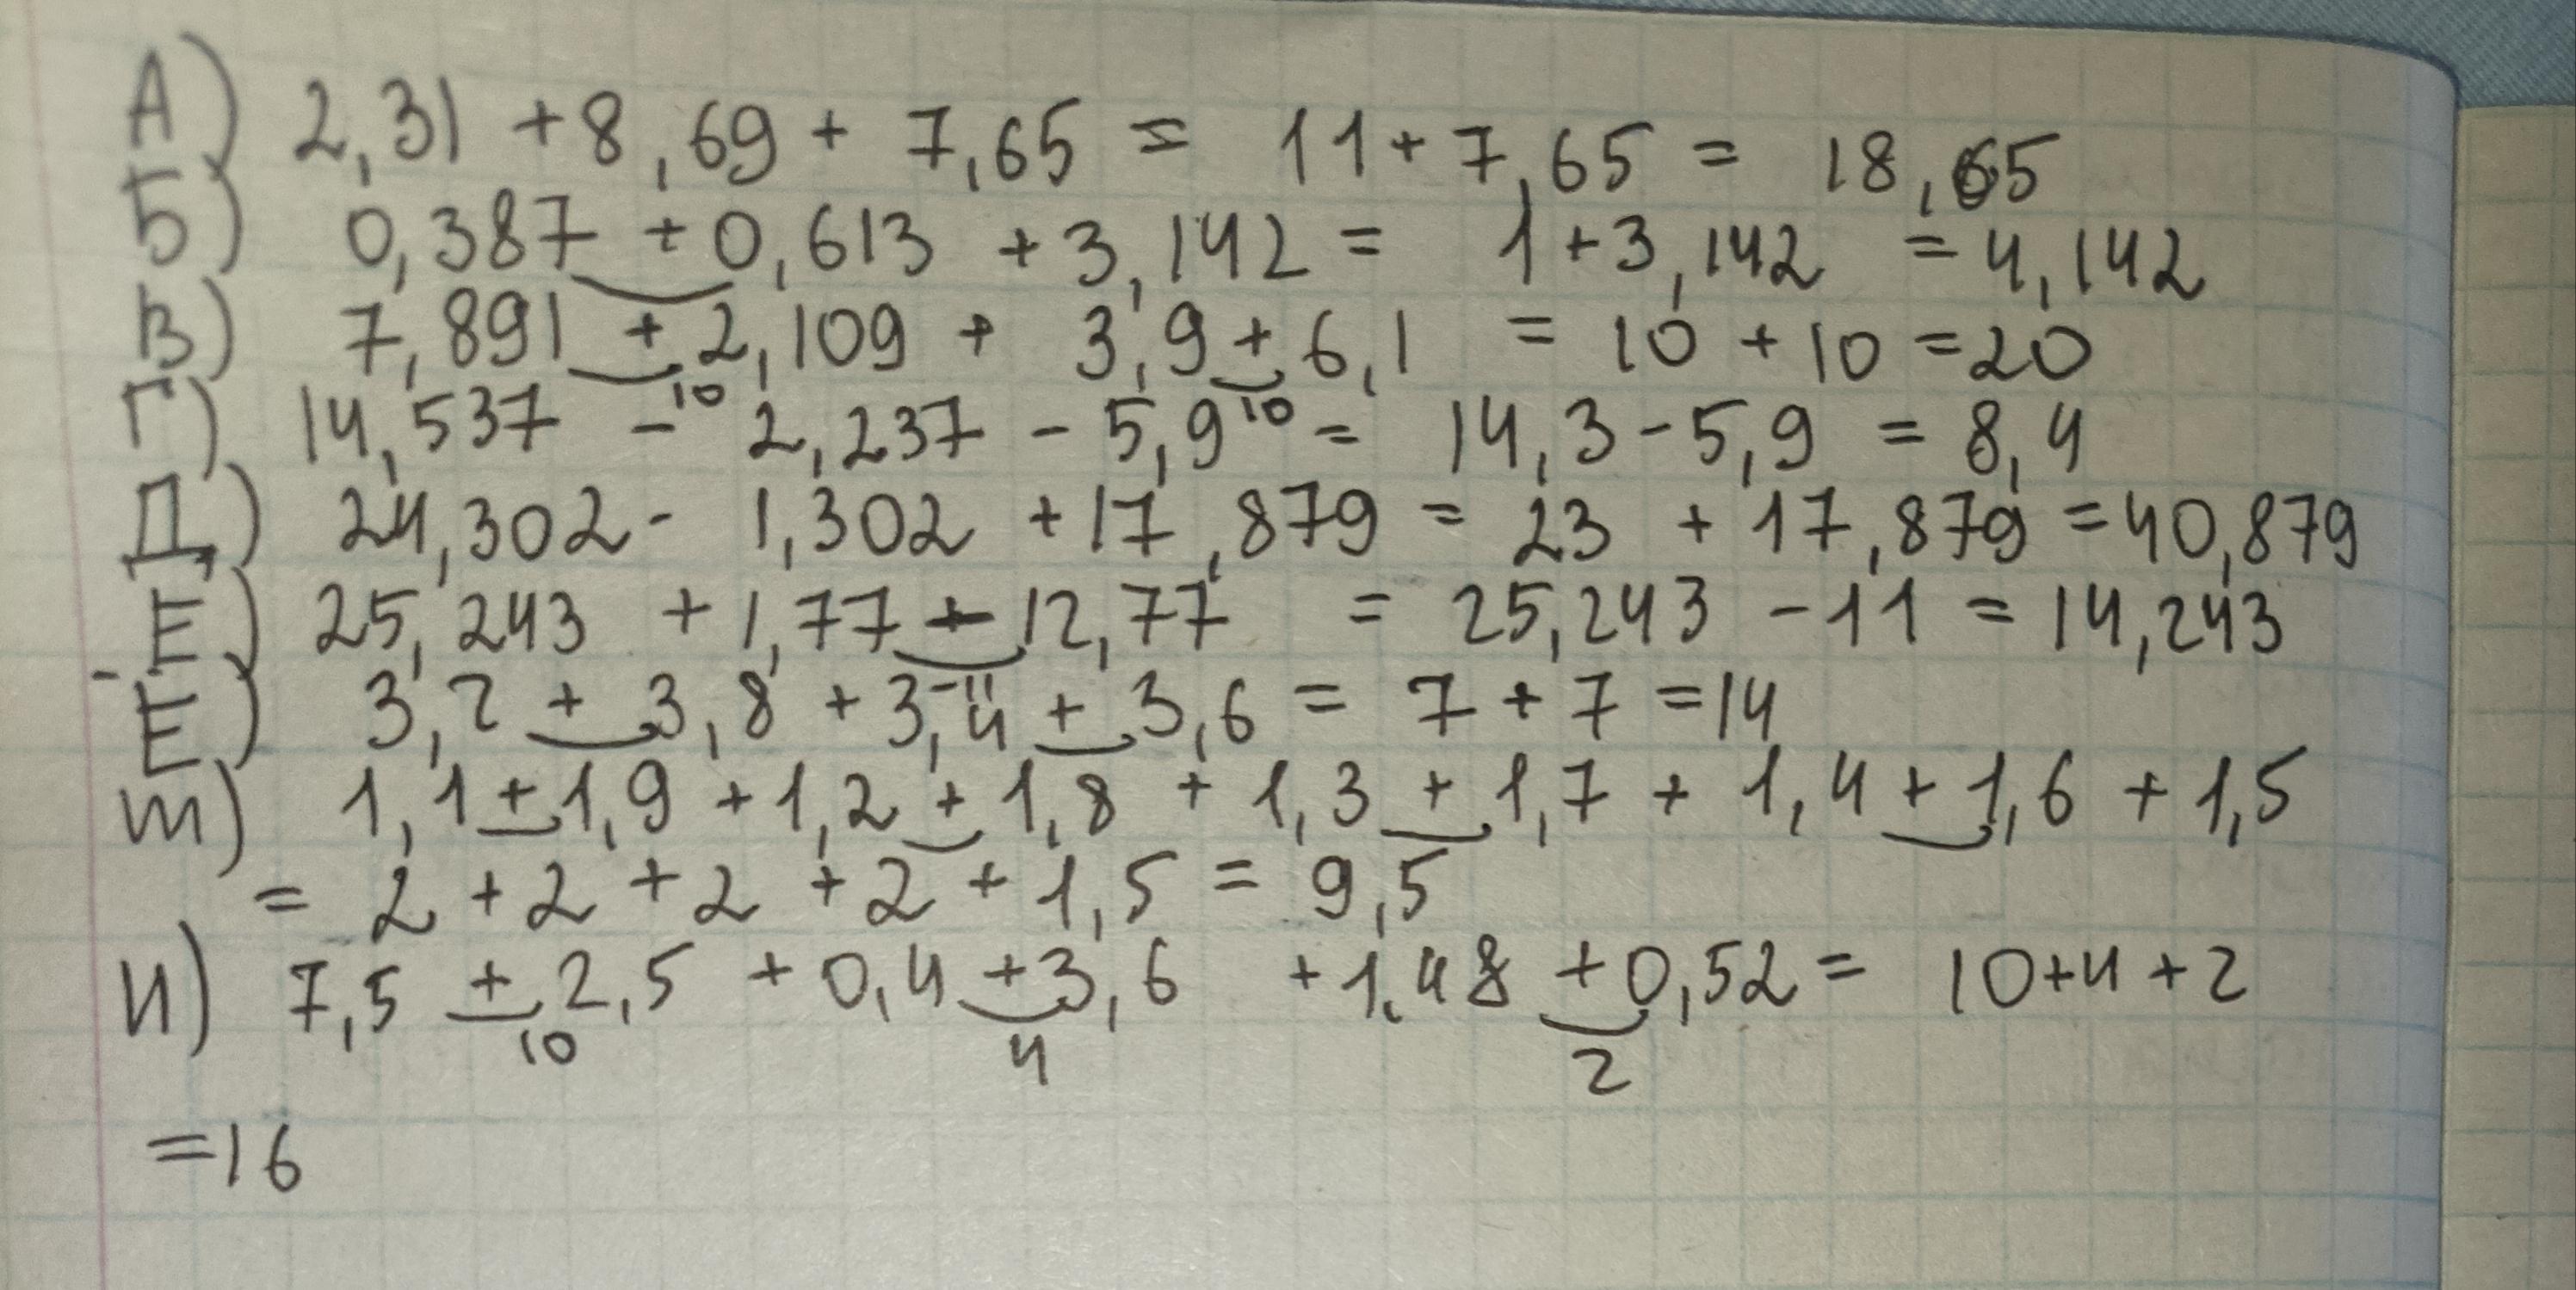 А) 2,31 + 8,69 + 7,65 = 11 + 7,65 = 18,65
Б) 0,387 + 0,613 + 3,142 = 1 + 3,142 = 4,142
В) 7,891 + 2,109 + 3,9 + 6,1 = 10 + 10 = 20
10 10
Г) 14,537 - 2,237 - 5,9 = 14,3 - 5,9 = 8,4
Д) 24,302 - 1,302 + 17,879 = 23 + 17,879 = 40,879
Е) 25,243 + 1,77 - 12,77 = 25,243 - 11 = 14,243
-11
Е) 3,2 + 3,8 + 3,4 + 3,6 = 7 + 7 = 14
Ж) 1,1 + 1,9 + 1,2 + 1,8 + 1,3 + 1,7 + 1,4 + 1,6 + 1,5
= 2 + 2 + 2 + 2 + 1,5 = 9,5
И) 7,5 + 2,5 + 0,4 + 3,6 + 1,48 + 0,52 = 10 + 4 + 2
10 4 2
= 16